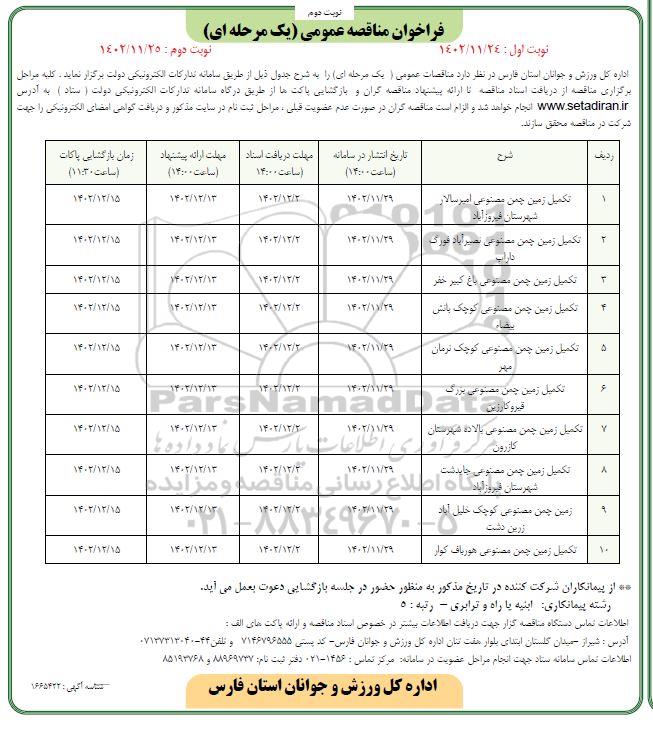 نوبت دوم
فراخوان مناقصه عمومی (یک مرحله ای)
نوبت اول : ۱۴۰۲/۱۱/۲۴ نوبت دوم : ۱۴۰۲/۱۱/۲۵
اداره کل ورزش و جوانان استان فارس در نظر دارد مناقصات عمومی ( یک مرحله ای) را به شرح جدول ذیل از طریق سامانه تدارکات الکترونیکی دولت برگزار نماید . کلیه مراحل
برگزاری مناقصه از دریافت اسناد مناقصه تا ارائه پیشنهاد مناقصه گران و بازگشایی پاکت ها از طریق درگاه سامانه تدارکات الکترونیکی دولت ( ستاد ) به آدرس
www.setadiran.ir انجام خواهد شد و الزام است مناقصه گران در صورت عدم عضویت قبلی ، مراحل ثبت نام در سایت مذکور و دریافت گواهی امضای الکترونیکی را جهت
شرکت در مناقصه محقق سازند.
ردیف شرح تاریخ انتشار در سامانه (ساعت:۱۴:۰۰) مهلت دریافت اسناد (ساعت:۱۴:۰۰ مهلت ارائه پیشنهاد (ساعت:۱۴:۰۰) زمان بازگشایی پاکات (ساعت:۱۱:۳۰)
۱ تکمیل زمین چمن مصنوعی امیرسالار شهرستان فیروزآباد ۱۴۰۲/۱۱/۲۹ ۱۴۰۲/۱۲/۲ ۱۴۰۲/۱۲/۱۳ ۱۴۰۲/۱۲/۱۵
۲ تکمیل زمین چمن مصنوعی نصیرآباد فورگ داراب ۱۴۰۲/۱۱/۲۹ ۱۴۰۲/۱۲/۲ ۱۴۰۲/۱۲/۱۳ ۱۴۰۲/۱۲/۱۵
۳ تکمیل زمین چمن مصنوعی باغ کبیر خفر ۱۴۰۲/۱۱/۲۹ ۱۴۰۲/۱۲/۲ ۱۴۰۲/۱۲/۱۳ ۱۴۰۲/۱۲/۱۵
۴ تکمیل زمین چمن مصنوعی کوچک بانش بیضاء ۱۴۰۲/۱۱/۲۹ ۱۴۰۲/۱۲/۲ ۱۴۰۲/۱۲/۱۳ ۱۴۰۲/۱۲/۱۵
۵ تکمیل زمین چمن مصنوعی کوچک نرمان مهر ۱۴۰۲/۱۱/۲۹ ۱۴۰۲/۱۲/۲ ۱۴۰۲/۱۲/۱۳ ۱۴۰۲/۱۲/۱۵
۶ تکمیل زمین چمن مصنوعی بزرگ قیروکارزین ۱۴۰۲/۱۱/۲۹ ۱۴۰۲/۱۲/۲ ۱۴۰۲/۱۲/۱۳ ۱۴۰۲/۱۲/۱۵
۷ تکمیل زمین چمن مصنوعی بالاده شهرستان کازرون ۱۴۰۲/۱۱/۲۹ ۱۴۰۲/۱۲/۲ ۱۴۰۲/۱۲/۱۳ ۱۴۰۲/۱۲/۱۵
۸ تکمیل زمین چمن مصنوعی جایدشت شهرستان فیروزآباد ۱۴۰۲/۱۱/۲۹ ۱۴۰۲/۱۲/۲ ۱۴۰۲/۱۲/۱۳ ۱۴۰۲/۱۲/۱۵
۹ زمین چمن مصنوعی کوچک خلیل آباد زرین دشت ۱۴۰۲/۱۱/۲۹ ۱۴۰۲/۱۲/۲ ۱۴۰۲/۱۲/۱۳ ۱۴۰۲/۱۲/۱۵
۱۰ تکمیل زمین چمن مصنوعی هورباف کوار ۱۴۰۲/۱۱/۲۹ ۱۴۰۲/۱۲/۲ ۱۴۰۲/۱۲/۱۳ ۱۴۰۲/۱۲/۱۵
ParsNamadData
۰۲۱-۸۸۳۴۹۶۷۰-۵
** از پیمانکاران شرکت کننده در تاریخ مذکور به منظور حضور در جلسه بازگشایی دعوت بعمل می آید.
رشته پیمانکاری: ابنیه یا راه و ترابری – رتبه : ۵
اطلاعات تماس دستگاه مناقصه گزار جهت دریافت اطلاعات بیشتر در خصوص اسناد مناقصه و ارائه پاکت های الف :
آدرس : شیراز -میدان گلستان ابتدای بلوار هفت تنان اداره کل ورزش و جوانان فارس- کد پستی ۷۱۴۶۷۹۶۵۵۵ و تلفن۴۴-۰۷۱۳۷۳۱۳۰۴۰
اطلاعات تماس سامانه ستاد جهت انجام مراحل عضویت در سامانه: مرکز تماس : ۱۴۵۶-۰۲۱ دفتر ثبت نام: ۸۸۹۶۹۷۳۷ و ۸۵۱۹۳۷۶۸
اداره کل ورزش و جوانان استان فارس
شناسه آگهی : ۱۶۶۵۴۲۲